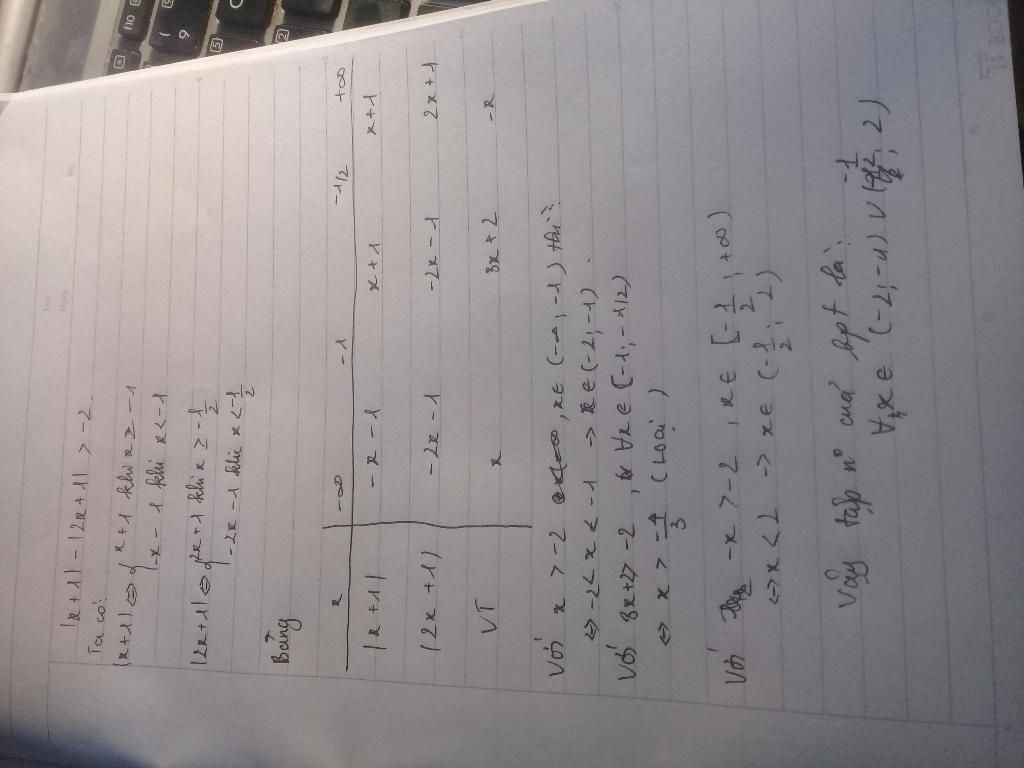 |x+1| - |2x+1| > -2
Ta có:
|x+1| ⇔ { x+1 khi x ≥ -1
{ -x-1 khi x < -1
|2x+1| ⇔ { 2x+1 khi x ≥ -1/2
{ -2x-1 khi x < -1/2
Bảng
x -∞ -1 -1/2 +∞
|x+1| -x-1 x+1 x+1
|2x+1| -2x-1 -2x-1 2x+1
VT x 3x+2 -x
Với x > -2, x ∈ (-∞, -1) thì:
⇔ -2 < x < -1 -> x ∈ (-2; -1)
Với 3x+2 > -2, ∀x ∈ [-1, -1/2)
⇔ x > -4/3 (Loại)
Với -x > -2, x ∈ [-1/2, +∞)
⇔ x < 2 -> x ∈ (-1/2; 2)
Vậy tập n° của bpt là:
∀x ∈ (-2; -1) ∪ (-1/2; 2)